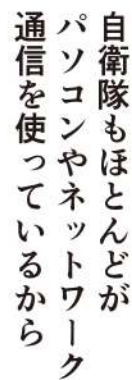 自衛隊もほとんどが
パソコンやネットワーク
通信を使っているから